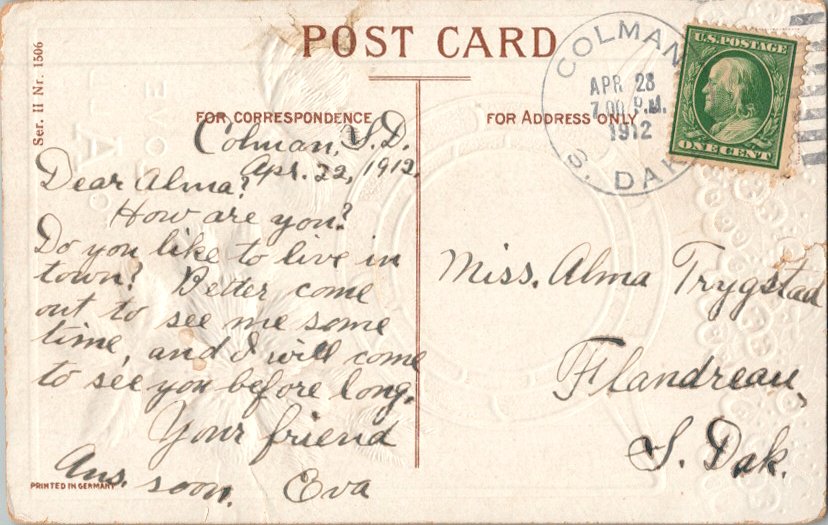 POST CARD
Ser. II Nr. 1506
FOR CORRESPONDENCE
FOR ADDRESS ONLY
COLMAN
APR 28
7 00 P.M.
1912
S. DAK
U.S. POSTAGE
ONE CENT
Colman, S.D.
Apr. 22, 1912.
Dear Alma:
How are you?
Do you like to live in
town? Better come
out to see me some
time, and I will come
to see you before long.
Your friend
Eva
Ans. soon.
PRINTED IN GERMANY
Miss. Alma Trygstad
Flandreau,
S. Dak.